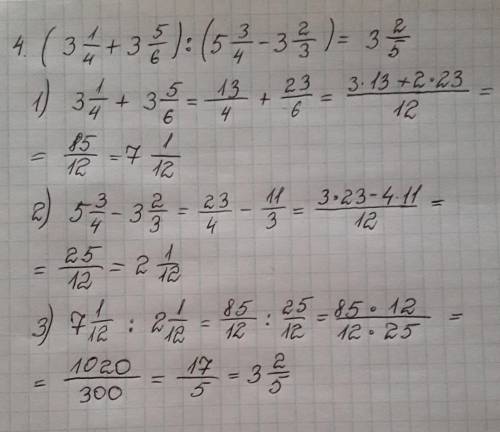 4. ( 3 1/4 + 3 5/6 ) : ( 5 3/4 - 3 2/3 ) = 3 2/5
1) 3 1/4 + 3 5/6 = 13/4 + 23/6 = (3·13 + 2·23)/12 =
= 85/12 = 7 1/12
2) 5 3/4 - 3 2/3 = 23/4 - 11/3 = (3·23 - 4·11)/12 =
= 25/12 = 2 1/12
3) 7 1/12 : 2 1/12 = 85/12 : 25/12 = (85·12)/(12·25) =
= 1020/300 = 17/5 = 3 2/5